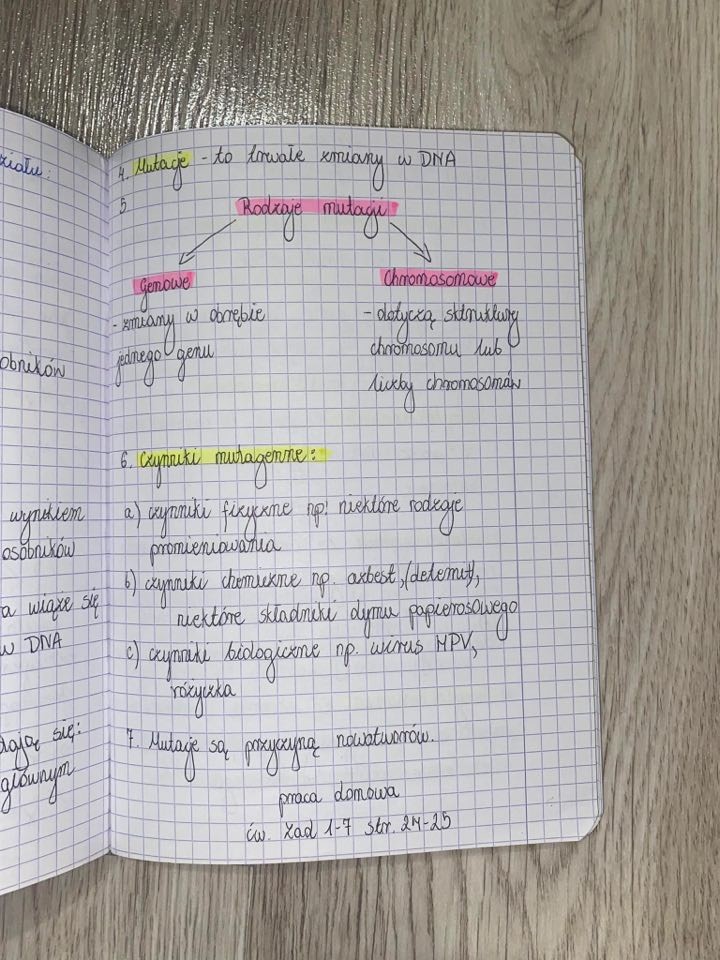 ziału:
obników
wynikiem
osobników
a wiąże się
w DNA
dają się:
głównym
4. Mutacje - to trwałe zmiany w DNA
5
Rodzaje mutacji
Genowe
- zmiany w obrębie
jednego genu
Chromosomowe
- dotyczą struktury
chromosomu lub
liczby chromosomów
6. Czynniki mutagenne:
a) czynniki fizyczne np: niektóre rodzaje
promieniowania
b) czynniki chemiczne np. azbest,
niektóre składniki dymu papierosowego
c) czynniki biologiczne np. wirus HPV,
różyczka
7. Mutacje są przyczyną nowotworów.
praca domowa
ćw. zad 1-7 str. 24-25